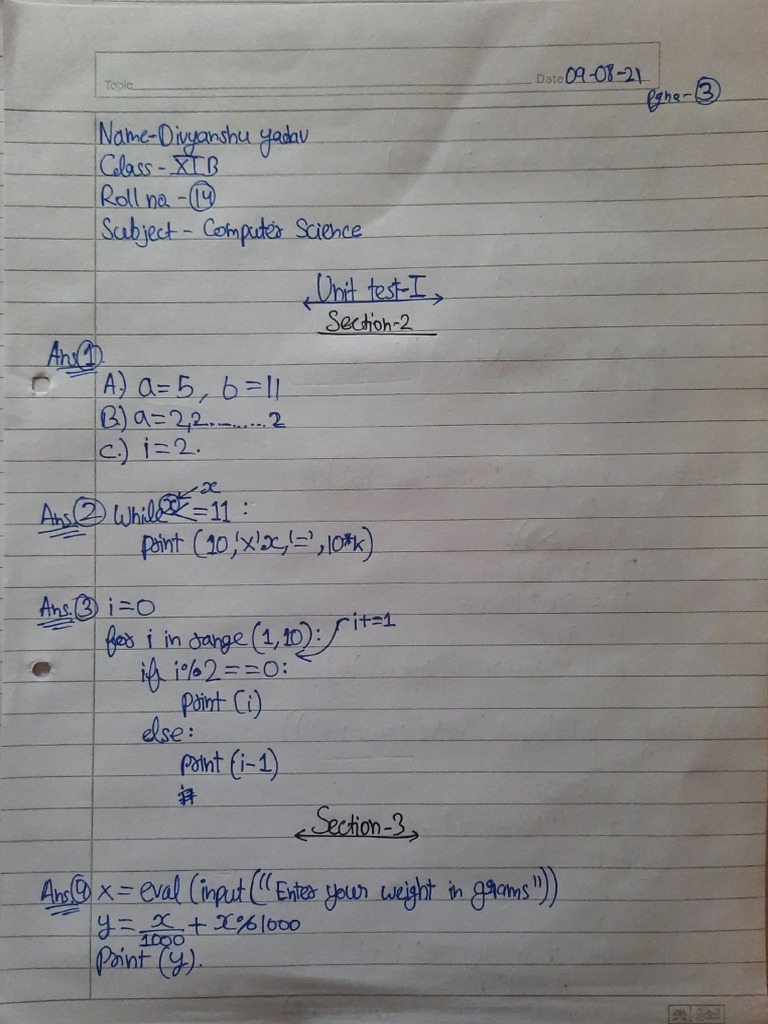 Topic Date 09-08-21
pgno-③
Name-Divyanshu yadav
Class - XI B
Roll no - ⑭
Subject - Computer Science
Unit test-I
Section-2
Ans ①
A.) a=5, b=11
B.) a=2,2.........2
C.) i=2.
x
Ans. ② While <=11 :
print (10,'x'x,'=',10*k)
Ans. ③ i=0
for i in range (1,10): i+=1
if i%2==0:
print (i)
else:
print (i-1)
Section-3
Ans ④ x = eval (input ("Enter your weight in grams"))
y = x/1000 + x%1000
Print (y).